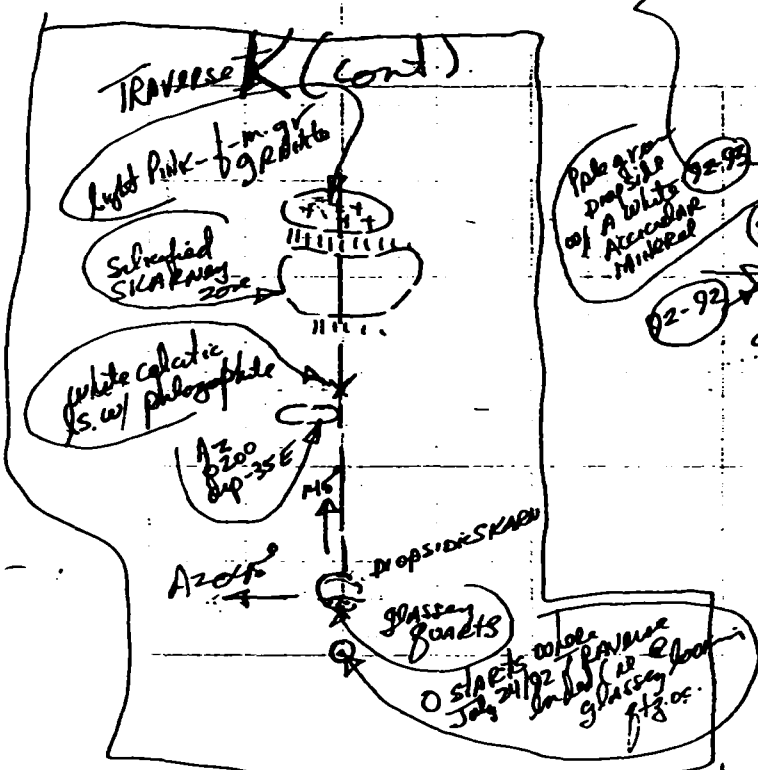 TRAVERSE K (cont)
light PINK-f-m.gr
gRANite
Silicified
SKARNey
zone
white calcitic
ls. w/ phlogophite
Az
0200
dip-35E
DIOPSIDIC SKARN
glassey
quARtS
O STARTS where
July 24/92 TRAVERSE
ended
glassey
qtz oc.
Pale green
DIOPSIDE
w/ A white
AccicuLAR
MINERAL
92-93
92-92